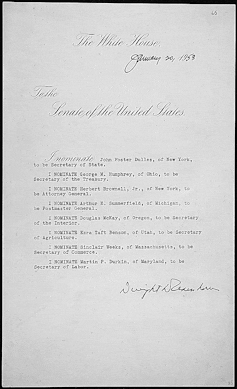 The White House,
January 20, 1953
To the
Senate of the United States.
I nominate John Foster Dulles, of New York,
to be Secretary of State.
I NOMINATE George M. Humphrey, of Ohio, to be
Secretary of the Treasury.
I NOMINATE Herbert Brownell, Jr., of New York, to
be Attorney General.
I NOMINATE Arthur E. Summerfield, of Michigan, to
be Postmaster General.
I NOMINATE Douglas McKay, of Oregon, to be Secretary
of the Interior.
I NOMINATE Ezra Taft Benson, of Utah, to be Secretary
of Agriculture.
I NOMINATE Sinclair Weeks, of Massachusetts, to be
Secretary of Commerce.
I NOMINATE Martin P. Durkin, of Maryland, to be
Secretary of Labor.
Dwight D Eisenhower